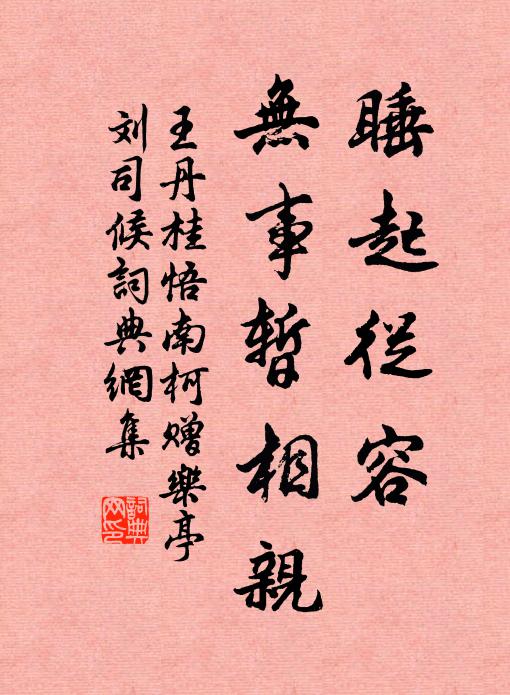 睡起從容
無事暫相親
王丹桂悟南柯贈樂亭
刘司候詞典網集
詞典网印